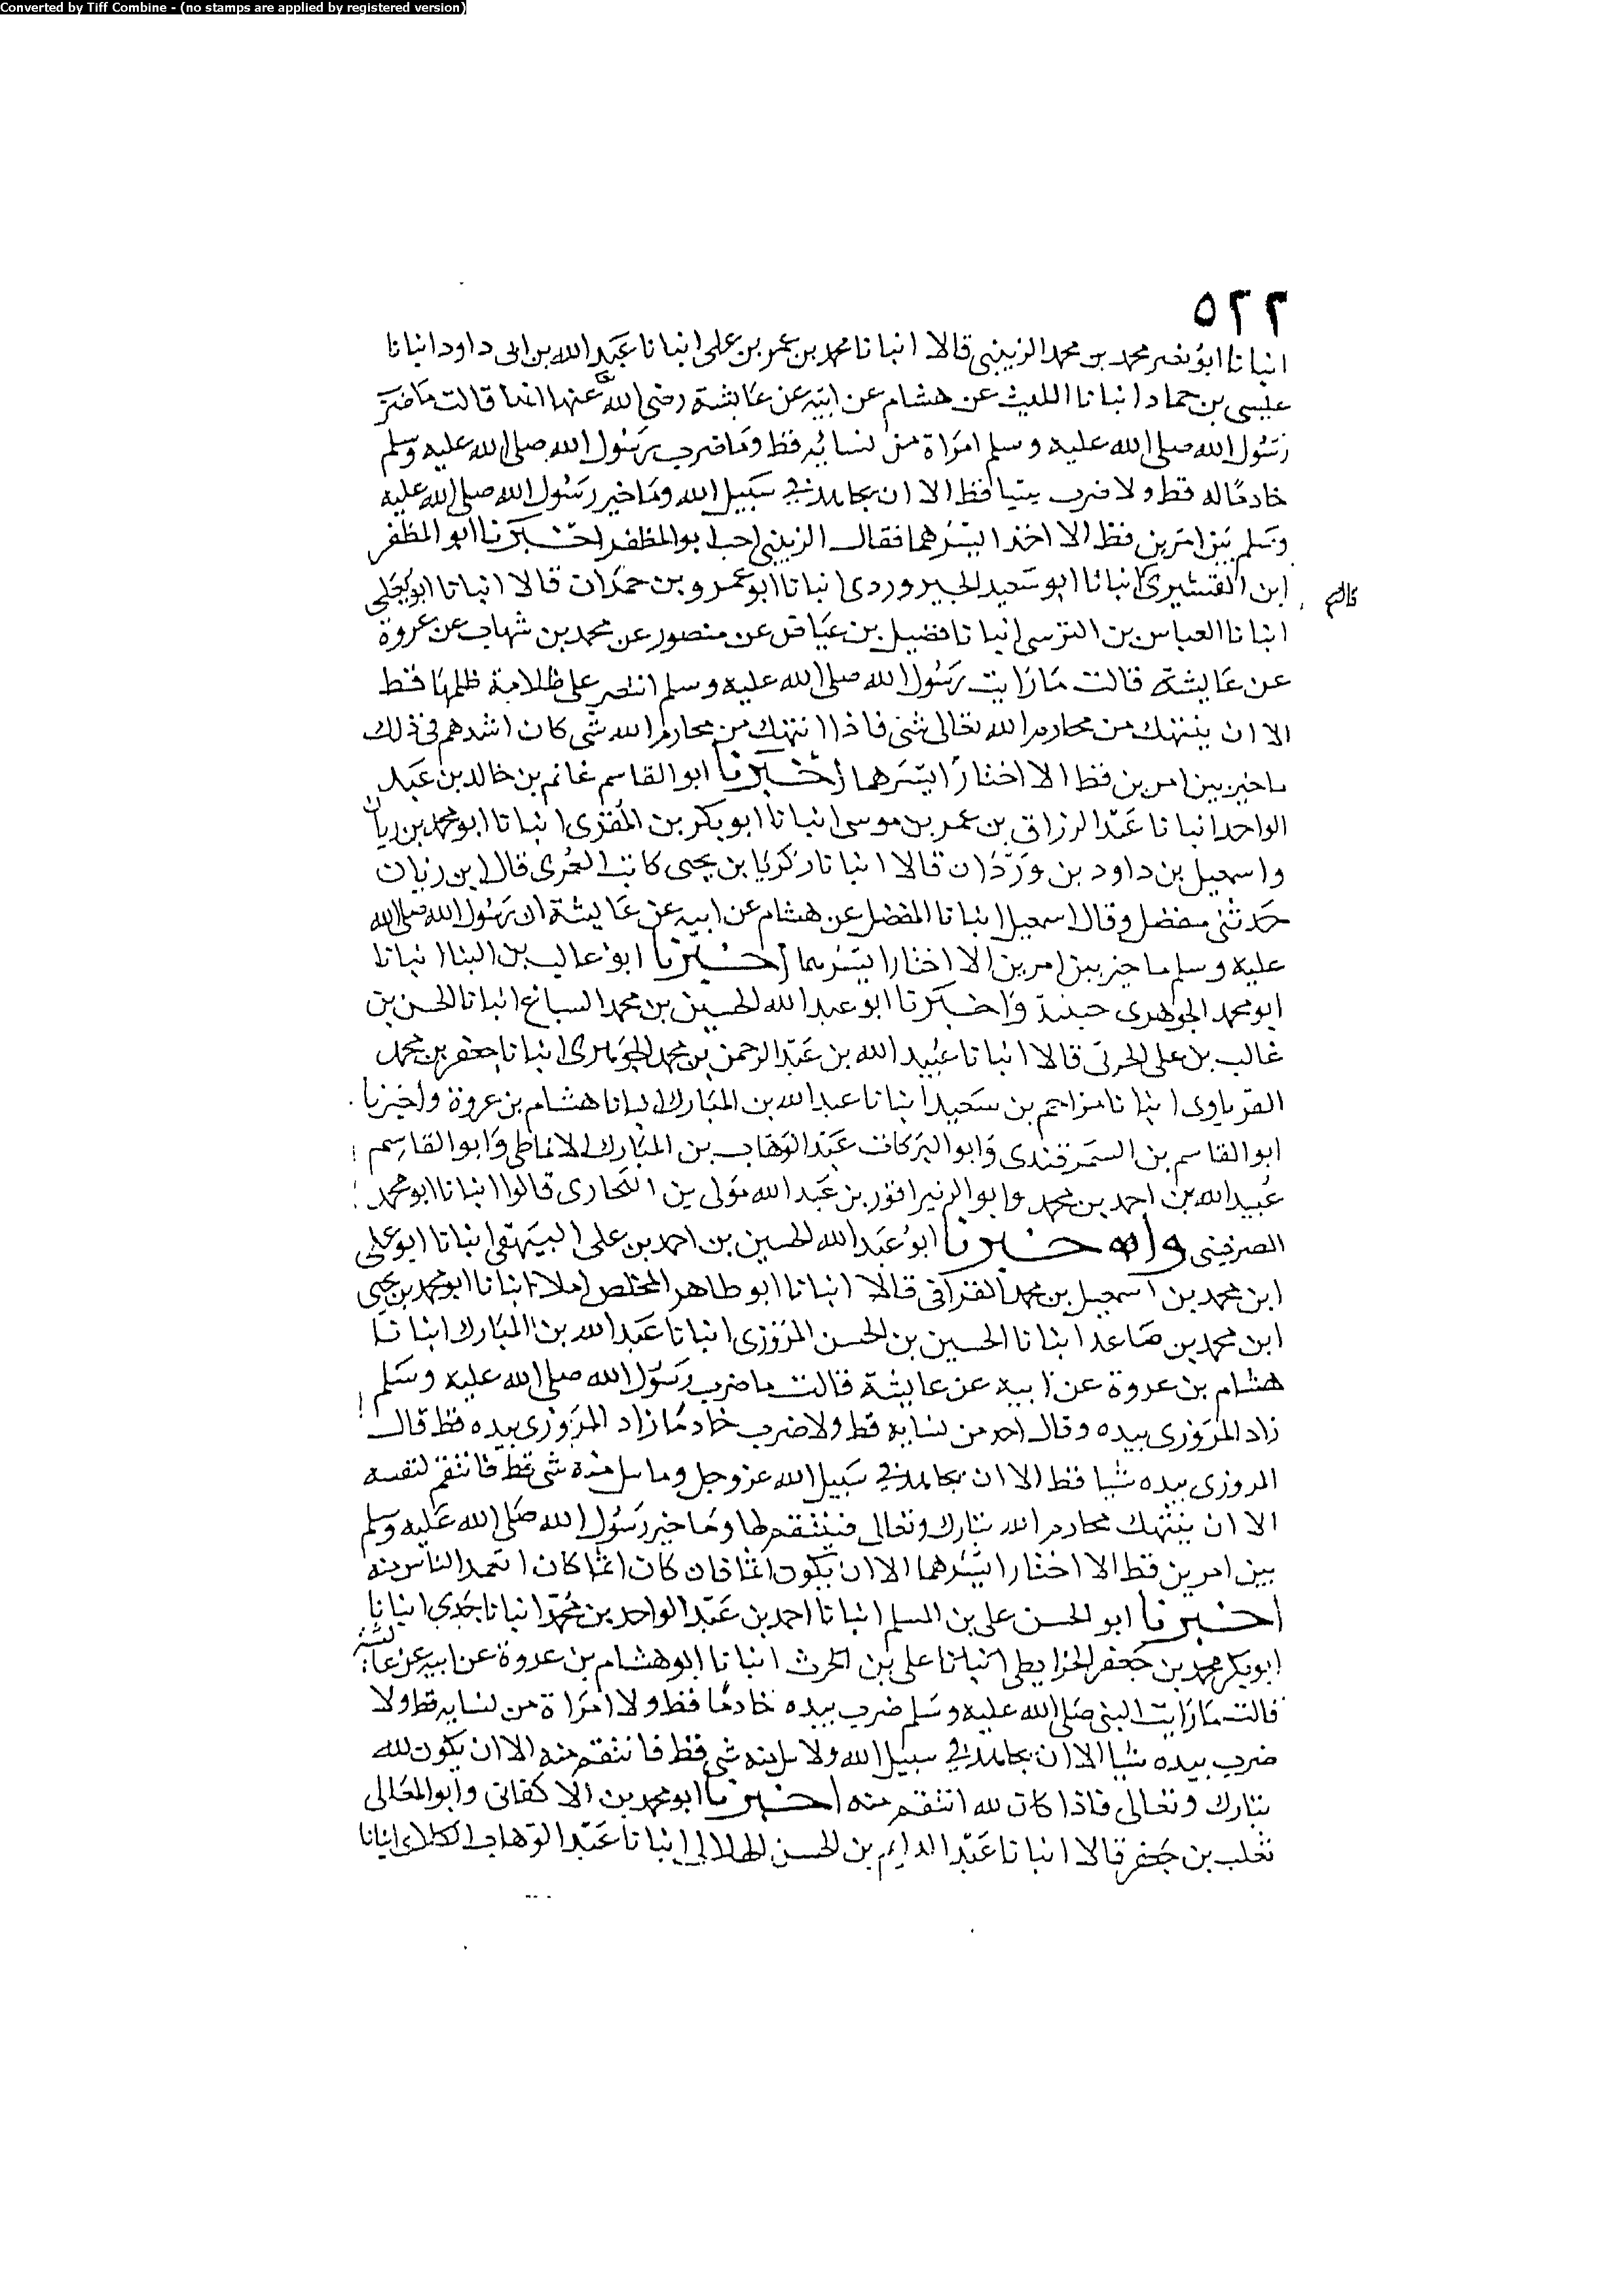 Converted by Tiff Combine - (no stamps are applied by registered version)
٥٢٢
انبانا ابو نصر محمد بن محمد الزينبي قالا انبانا محمد بن عمر بن علي انبانا عبد الله بن ابى داود انبانا
عيسى بن حماد انبانا الليث عن هشام عن ابيه عن عايشة رضي الله عنها انها قالت ما ضرب
رسول الله صلى الله عليه وسلم امراة من نسائه قط وما ضرب رسول الله صلى الله عليه وسلم
خادما له قط ولا ضرب شيا قط الا ان يجاهد في سبيل الله وما خير رسول الله صلى الله عليه
وسلم بين امرين قط الا اخذ ايسرهما فقال الزينبي احب ابو المظفر اخبرنا ابو المظفر
ابن القشيري انبانا ابو سعيد الجيروردى انبانا ابو عمرو بن حمدان قالا انبانا ابو يعلى
انبانا العباس بن النرسى انبانا فضيل بن عياض عن منصور عن محمد بن شهاب عن عروة
عن عايشة قالت ما رايت رسول الله صلى الله عليه وسلم انتصر على ظلامة ظلمها قط
الا ان ينتهك من محارم الله تعالى شي فاذا انتهك من محارم الله شي كان اشدهم في ذلك
ما خير بين امرين قط الا اختار ايسرهما اخبرنا ابو القاسم غانم بن خالد بن عبد
الواحد انبانا عبد الرزاق بن عمر بن موسى انبانا ابو بكر بن المقرى انبانا ابو محمد بن ريان
واسمعيل بن داود بن وردان قالا انبانا زكريا بن يحيى كاتب العمرى قال ابن زيان
حدثني مفضل وقال اسمعيل انبانا المفضل عن هشام عن ابيه عن عايشة ان رسول الله صلى الله
عليه وسلم ما خير بين امرين الا اختار ايسرهما اخبرنا ابو غالب بن البنا انبانا
ابو محمد الجوهرى ح واخبرنا ابو عبد الله الحسين بن محمد انبانا الحسن بن
غالب بن علي الحربى قالا انبانا عبيد الله بن عبد الرحمن بن محمد الجوهرى انبانا جعفر بن محمد
الفرياوى انبانا مزاحم بن سعيد انبانا عبد الله بن المبارك انبانا هشام بن عروة واخبرنا
ابو القاسم بن السمرقندى وابو البركات عبد الوهاب بن المبارك الانماطى وابو القاسم
عبيد الله بن احمد بن محمد وابو الدر ياقوت بن عبد الله مولى بن البخارى قالوا انبانا ابو محمد
الصريفينى واخبرنا ابو عبد الله الحسين بن احمد بن على البيهقى انبانا ابو على
ابن محمد بن اسمعيل بن محمد العراقى قالا انبانا ابو طاهر المخلص املا انبانا ابو محمد بن يحيى
ابن محمد بن صاعد انبانا الحسين بن الحسن المروزى انبانا عبد الله بن المبارك انبانا
هشام بن عروة عن ابيه عن عايشة قالت ما ضرب رسول الله صلى الله عليه وسلم
زاد المروزى بيده وقال احد من نسايه قط ولا ضرب خادما زاد المروزى بيده قط قال
المروزى بيده شيا قط الا ان يجاهد في سبيل الله عز وجل وما نيل منه شى قط فانتقم لنفسه
الا ان ينتهك محارم الله تبارك وتعالى فينتقم لها وما خير رسول الله صلى الله عليه وسلم
بين امرين قط الا اختار ايسرهما الا ان يكون اثما فان كان اثما كان ابعد الناس منه
اخبرنا ابو الحسن على بن المسلم انبانا احمد بن عبد الواحد بن محمد انبانا جدى انبانا
ابو بكر محمد بن جعفر الخرايطى انبانا على بن الحرث انبانا ابو هشام بن عروة عن ابيه عن عايشة
قالت ما رايت النبى صلى الله عليه وسلم ضرب بيده خادما قط ولا امراة من نسايه قط ولا
ضرب بيده شيا الا ان يجاهد في سبيل الله ولا نيل منه شى قط فانتقم منه الا ان يكون لله
تبارك وتعالى فاذا كان لله انتقم منه اخبرنا ابو محمد بن الاكفانى وابو المعالى
تغلب بن جعفر قالا انبانا عبد الدايم بن الحسن الهلالى انبانا عبد الوهاب الكلابى انبانا